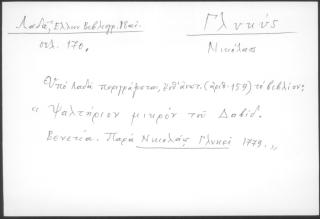 Λαδᾶ, Ἑλλην. Βιβλιογρ.
σελ. 170.
Γλυκύς
Νικόλαος
Ὑπὸ Λαδᾶ περιγράφεται, (ἀριθ. 159) τὸ βιβλίον:
« Ψαλτήριον μικρὸν τοῦ Δαβίδ.
Βενετία. Παρὰ Νικολάῳ Γλυκεῖ 1779. »